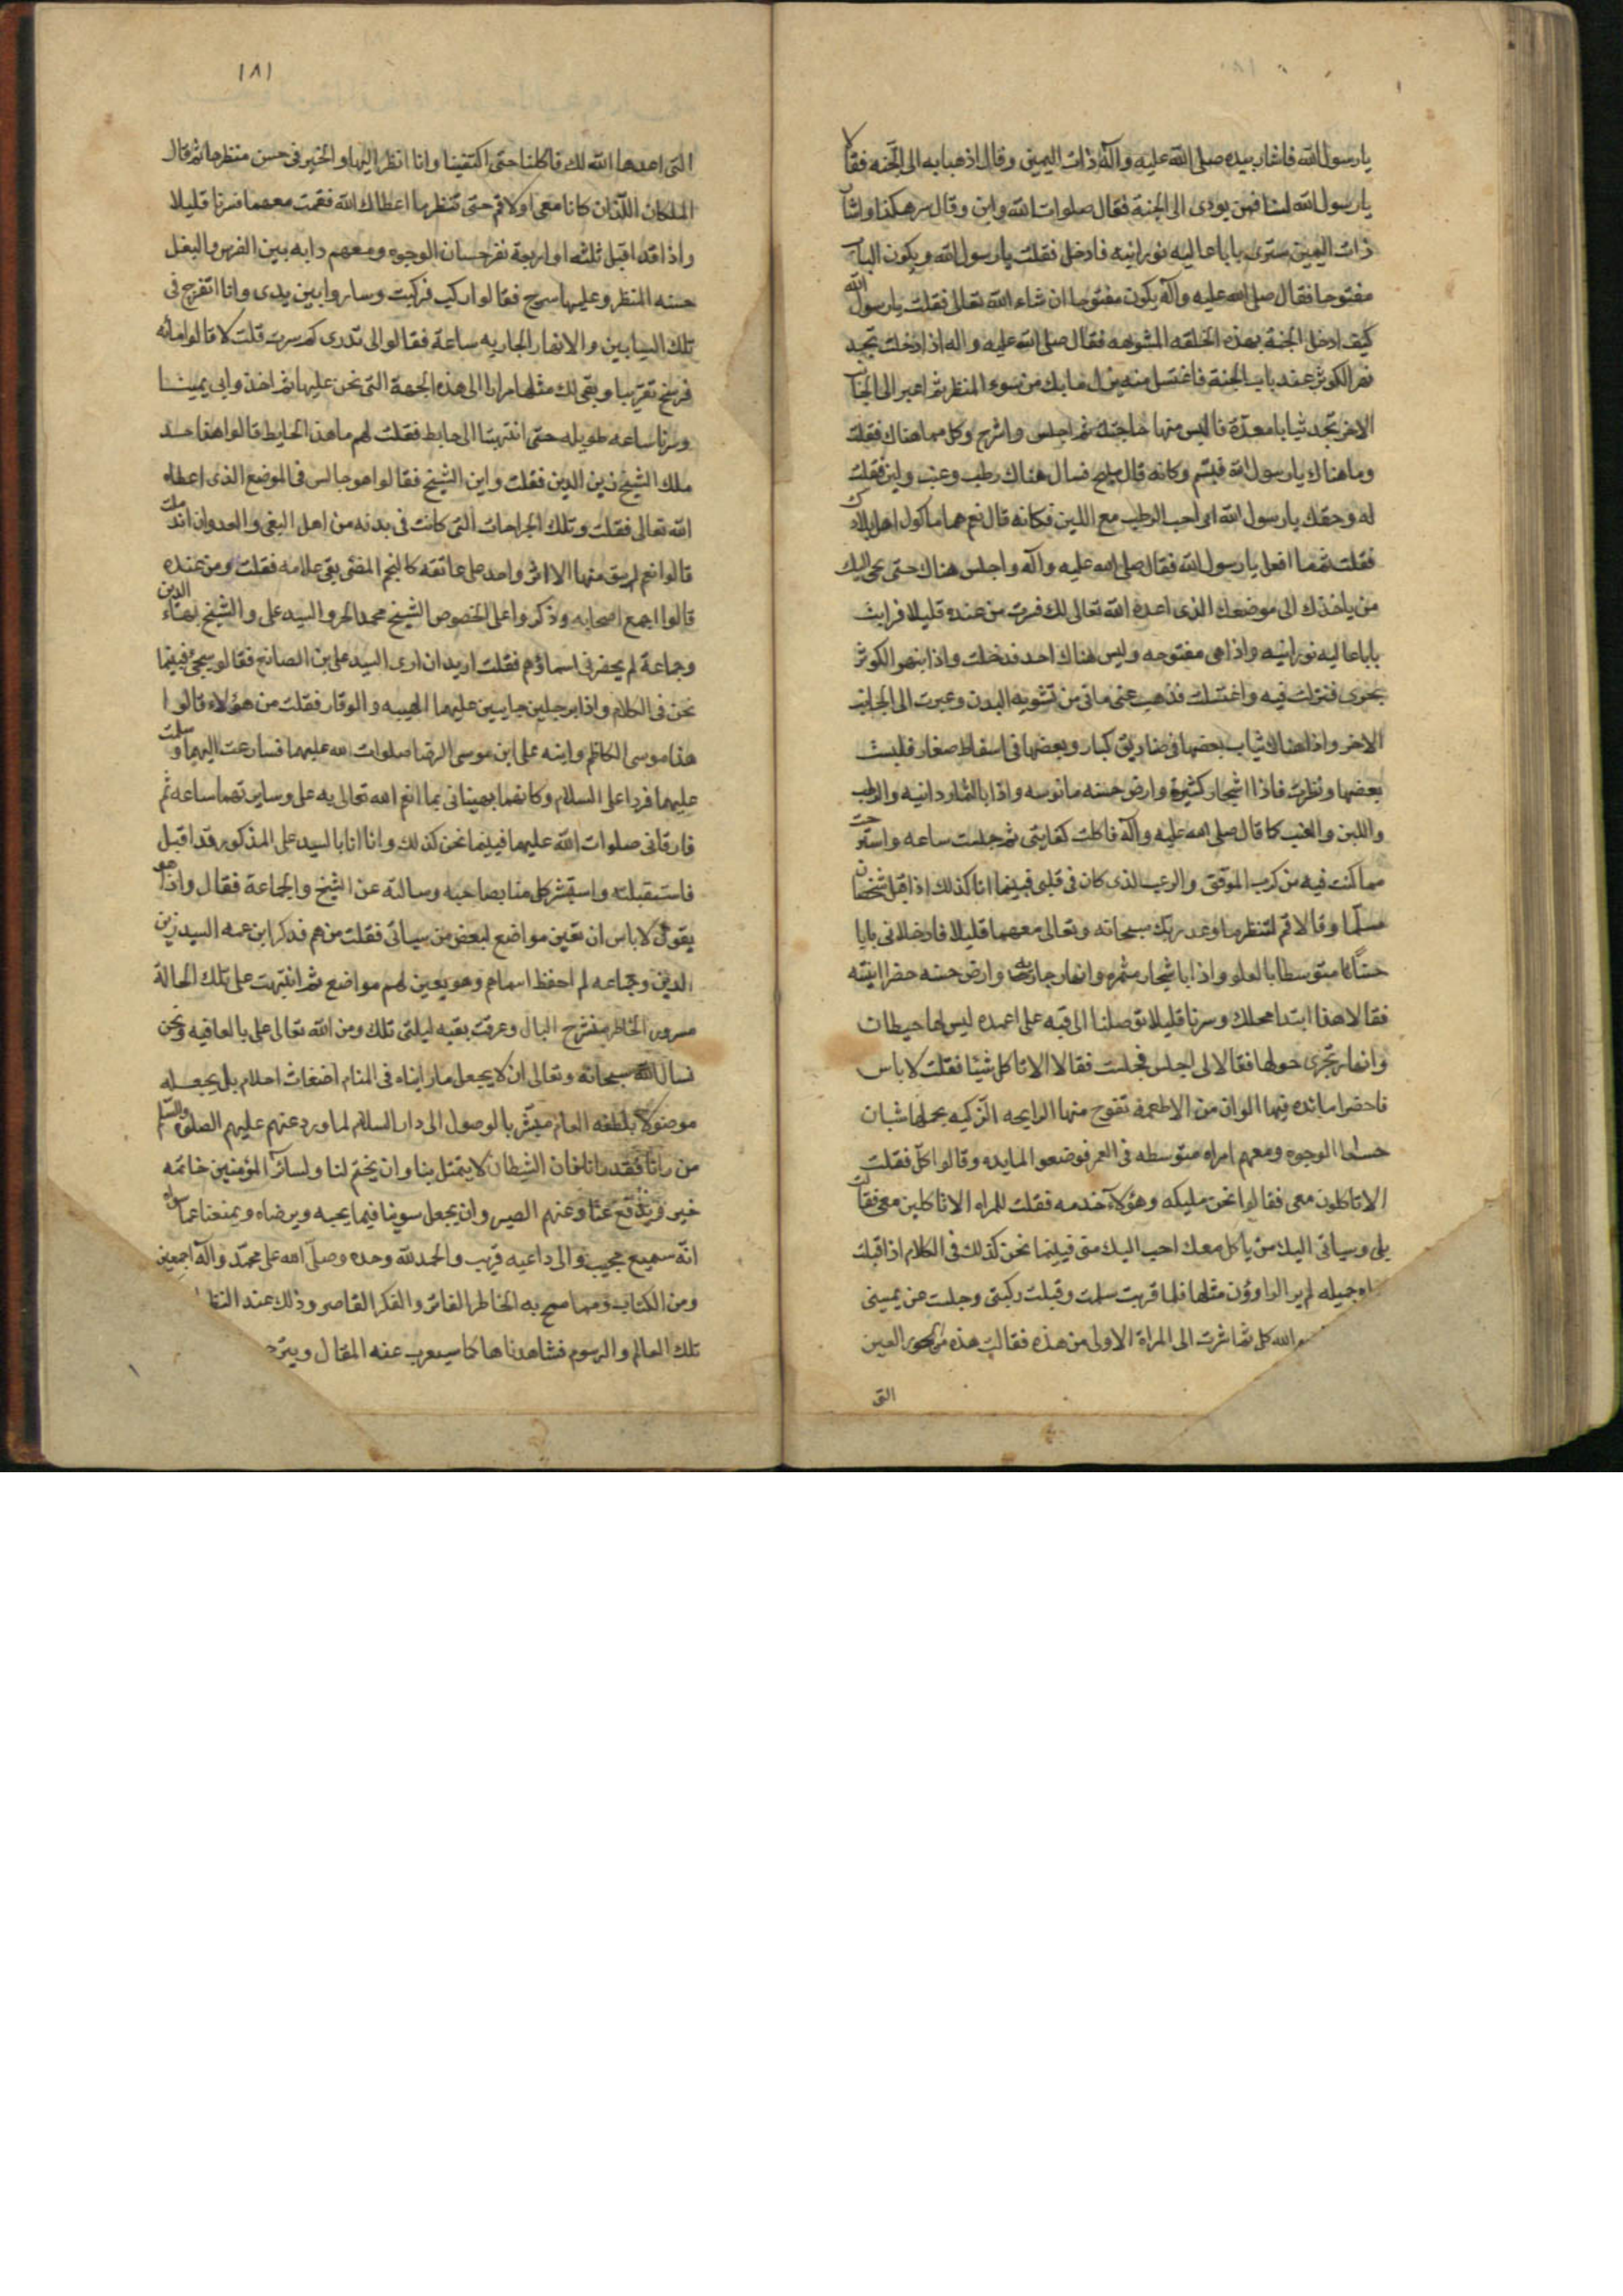 يا رسول الله فاشار بيده صلى الله عليه وآله ذات اليمين وقال اذهبا به الى الجنه فقالا
يا رسول الله لسنا فمن يودى الى الجنة فقال صلوات الله واين وقال سر هكذا واشار
ذات اليمين سترى بابا عاليه نورانيه فادخل فقلت يا رسول الله ويكون الباب
مفتوحا فقال صلى الله عليه وآله يكون مفتوحا ان شاء الله تعالى فقلت يا رسول الله
كيف ادخل الجنة بهذه الخلقه المشوهه فقال صلى الله عليه واله اذا دخلت تجد
نهر الكوثر عند باب الجنة فاغتسل منه يزل ما بك من سوء المنظر ثم اعبر الى الجانب
الاخر تجد ثيابا معدة فالبس منها حاجتك ثم اجلس واشرح وكل مما هناك فقلت
وما هناك يا رسول الله فتبسم وكانه قال مليح فسال هناك رطب وعنب ولبن فقلت
له وحقك يا رسول الله انى احب الرطب مع اللبن فكانه قال نعم هما ماكول اهل بلادك
فقلت ثم ما افعل يا رسول الله فقال صلى الله عليه وآله واجلس هناك حتى يجى اليك
من ياخذك الى موضعك الذى اعده الله تعالى لك فسرت من عنده قليلا فرايت
بابا عاليه نورانيه واذا هى مفتوحه وليس هناك احد فدخلت واذا بنهر الكوثر
يجرى فنزلت فيه واغتسلت فذهب عنى ما بى من تشويه البدن وعبرت الى الجانب
الاخر واذا هناك ثياب بعضها فى صناديق كبار وبعضها فى اسفاط صغار فلبست
بعضها ونظرت فاذا اشجار كثيرة وارض حسنه مانوسه واذا بالثمار دانيه والرطب
واللبن والعنب كما قال صلى الله عليه وآله فاكلت كفايتى ثم جلست ساعه واسترحت
مما كنت فيه من كرب الموقف والرعب الذى كان فى قلبى فبينما انا كذلك اذ اقبل شخصان
مسلما وقالا قم لتنظر ما وعد ربك سبحانه وتعالى معهما قليلا فادخلانى بابا
حسنا متوسطا بالعلو واذا باشجار مثمره وانهار جاريه وارض حسنه خضرا انيقه
فقالا هذا ابتدا محلك وسرنا قليلا فوصلنا الى قبه على اعمده ليس لها حيطان
وانهار تجرى حولها فقالا لى اجلس فجلست فقالا الا تاكل شيئا فقلت لا باس
فاحضرا مائده فيها الوان من الاطعمه تفوح منها الرايحه الزكيه يحملها شبان
حسان الوجوه ومعهم امراه متوسطه فى العمر فوضعوا المايده وقالوا كل فقلت
الا تاكلون معى فقالوا نحن مليكه وهؤلاء خدمه فقلت للمراه الا تاكلين معى فقالت
بلى وسياتى اليك من ياكل معك احب اليك منى فبينما نحن كذلك فى الكلام اذ اقبلت
جميله لم ير الراؤون مثلها فلما قربت سلمت وقبلت ركبتى وجلست عن يمينى
الله كل ثم اشرت الى المراة الاولى من هذه فقالت هذه من الحور العين
التى
١٨١
التى اهدها الله لك فاكلنا حتى اكتفينا وانا انظر اليها واتحير فى حسن منظرها ثم قال
الملكان اللذان كانا معى اولا قم حتى تنظر ما اعطاك الله فقمت معهما فسرنا قليلا
واذا قد اقبل ثلثه او اربعة نفر حسان الوجوه ومعهم دابه بين الفرس والبغل
حسنه المنظر وعليها سرج فقالوا اركب فركبت وساروا بين يدى وانا اتفرج فى
تلك البساتين والانهار الجاريه ساعة فقالوا لى تدرى كم سرت قلت لا قالوا مائه
فرسخ تقريبا وبقى لك مثلها مرارا الى هذه الجهة التى نحن عليها ثم اخذوا بى يمينا
وسرنا ساعه طويله حتى انتهينا الى حايط فقلت لهم ما هذا الحايط قالوا هذا حد
ملك الشيخ زين الدين فقلت واين الشيخ فقالوا هو جالس فى الموضع الذى اعطاه
الله تعالى فقلت وتلك الجراحات التى كانت فى بدنه من اهل البغى والعدوان اندملت
قالوا نعم لم يبق منها الا اثر واحد على عاتقه كالنجم المضئى بقى علامه فقلت ومن عنده
قالوا جمع اصحابه وذكروا على الخصوص الشيخ محمد الحر والسيد على والشيخ بهاء الدين
وجماعة لم يحضرنى اسماؤهم فقلت اريد ان ارى السيد على بن الصائغ فقالوا سيجئ فبينما
نحن فى الكلام واذا برجلين جايين عليهما الهيبه والوقار فقلت من هؤلاء قالوا
هذا موسى الكاظم وابنه على ابن موسى الرضا صلوات الله عليهما فسارعت اليهما وسلمت
عليهما فردا على السلام وكانهما يهنيانى بما انعم الله تعالى به على وسايرتهما ساعه ثم
فارقانى صلوات الله عليهما فبينما نحن كذلك وانا انا بالسيد على المذكور قد اقبل
فاستقبلته واستبشر كل منا بصاحبه وسالته عن الشيخ والجماعة فقال واذا هو
يقول لا باس ان تعين مواضع لبعض من سياتى فقلت من هم فذكر ابن عمه السيد زين
الدين وجماعه لم احفظ اسماهم وهو يعين لهم مواضع ثم انتبهت على تلك الحالة
مسرور الخاطر منشرح البال وعرفت بقيه ليلتى تلك ومن الله تعالى على بالعافيه ونحن
نسال الله سبحانه وتعالى ان لا يجعل ما رايناه فى المنام اضغاث احلام بل يجعله
بلطفه العام مبشرا بالوصول الى دار السلام لما ورد عنهم عليهم الصلوة والسلام
من رانا فقد رانا فان الشيطان لا يتمثل بنا وان يختم لنا ولسائر المؤمنين خاتمه
خير ويدفع عنا وعنهم الضير وان يجعل سعينا فيما يحبه ويرضاه ويمنعنا عما سواه
انه سميع مجيب والى داعيه قريب والحمد لله وحده وصلى الله على محمد وآله اجمعين
ومن الكتاب ومما سمح به الخاطر الفاتر والفكر القاصر وذلك عند
تلك المعالم والرسوم فشاهدناها كما سيعرب عنه المقال